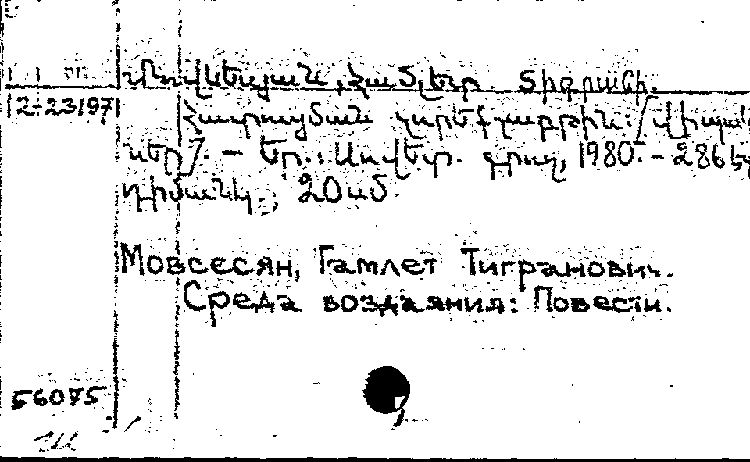 Մովսեսյան, Համլետ Տիգրանի.
2-23197
Հատուցման չորեքշաբթին: [Վիպակ
ներ]. – Եր.: Սովետ. գրող, 1980. – 286 էջ
դիմանկ.; 20 սմ.
Мовсесян, Гамлет Тигранович.
Среда воздаяния: Повести.
56075